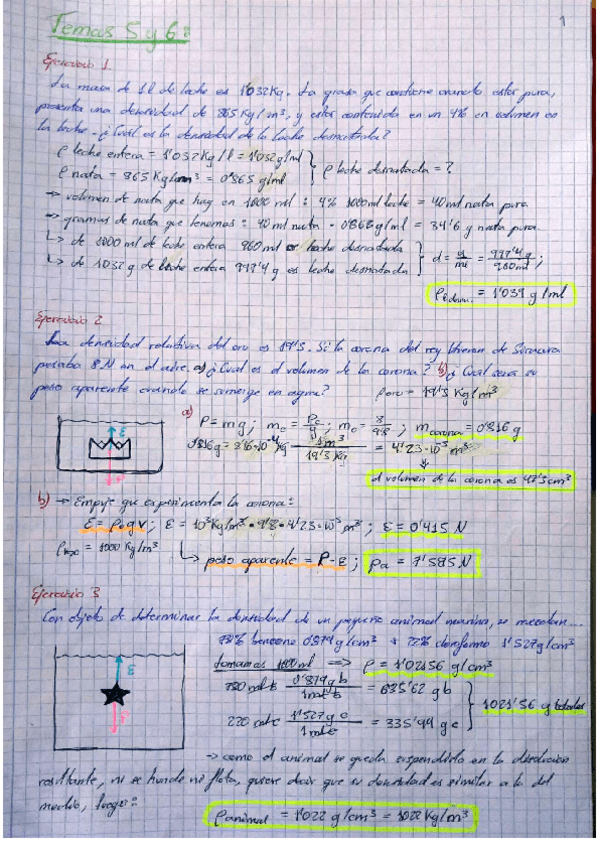 1
Temas 5 y 6:
Ejercicio 1.
La masa de 1l de leche es 1'032Kg. La grasa que contiene cuando está pura,
presenta una densidad de 865 Kg/m³, y está contenida en un 4% en volumen en
la leche. ¿Cuál es la densidad de la leche desnatada?
ρ leche entera = 1'032Kg/l = 1'032g/ml
ρ leche desnatada = ?
ρ nata = 865 Kg/m³ = 0'865 g/ml
→ volumen de nata que hay en 1000 ml : 4% 1000ml leche = 40ml nata pura
→ gramos de nata que tenemos: 40 ml nata · 0'865 g/ml = 34'6 g nata pura
↳ de 1000 ml de leche entera 960 ml leche desnatada
↳ de 1032 g de leche entera 997'4 g es leche desnatada
d = g/ml = 997'4 g/960 ml ;
= 1'039 g/ml
Ejercicio 2
La densidad relativa del oro es 19'3. Si la corona del rey Hieron de Siracusa
pesaba 8N en el aire. a) ¿Cuál es el volumen de la corona? b) ¿Cuál será su
peso aparente cuando se sumerge en agua?
ρoro = 19'3 Kg/m³
a)
P = mg ; mc = Pc/g ; mc = 8/9'8 ; m corona = 0'816 g
= 4'23·10⁻⁵ m³
el volumen de la corona es 42'3cm³
E
P
b) → Empuje que experimenta la corona:
E = ρ g V ; E = 10³Kg/m³ · 9'8 · 4'23·10⁻⁵ m³ ; E = 0'415 N
= 1000 Kg/m³
↳ peso aparente = P - E ; Pa = 7'585 N
Ejercicio 3
Con objeto de determinar la densidad de un pequeño animal marino, se mezclan...
78% benceno 0'879g/cm³ + 22% cloroformo 1'527g/cm³
tomamos 1000ml ⇒ ρ = 1'02156 g/cm³
0'879 g b / 1ml b = 685'62 g b
220 ml c 1'527 g c / 1ml c = 335'94 g c
1021'56 g totales
E
P
→ como el animal se queda suspendido en la disolución
resultante, ni se hunde ni flota, quiere decir que su densidad es similar a la del
medio, luego:
ρ animal = 1'022 g/cm³ = 1022 Kg/m³